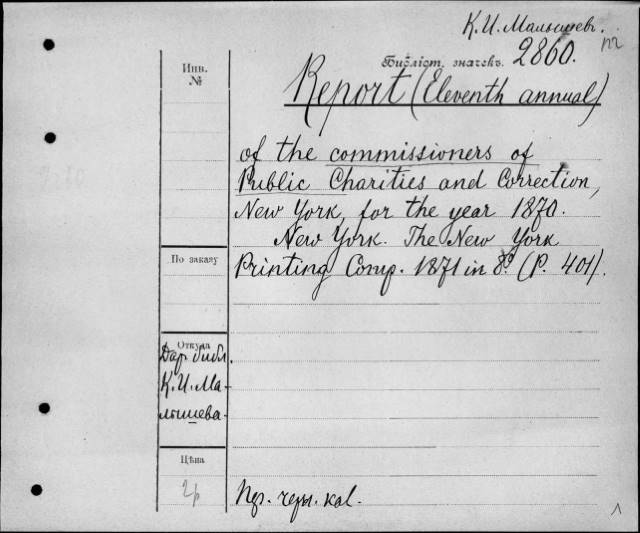 К. И. Малышевъ.
Библіот. значекъ. 2860.
Инв. №
Report (Eleventh annual)
of the commissioners of
Public Charities and Correction,
New York, for the year 1870.
New York. The New York
Printing Comp. 1871 in 8º. (P. 401).
По заказу
Откуда
Дар библ.
К. И. Ма-
лышева.
Цѣна
2р